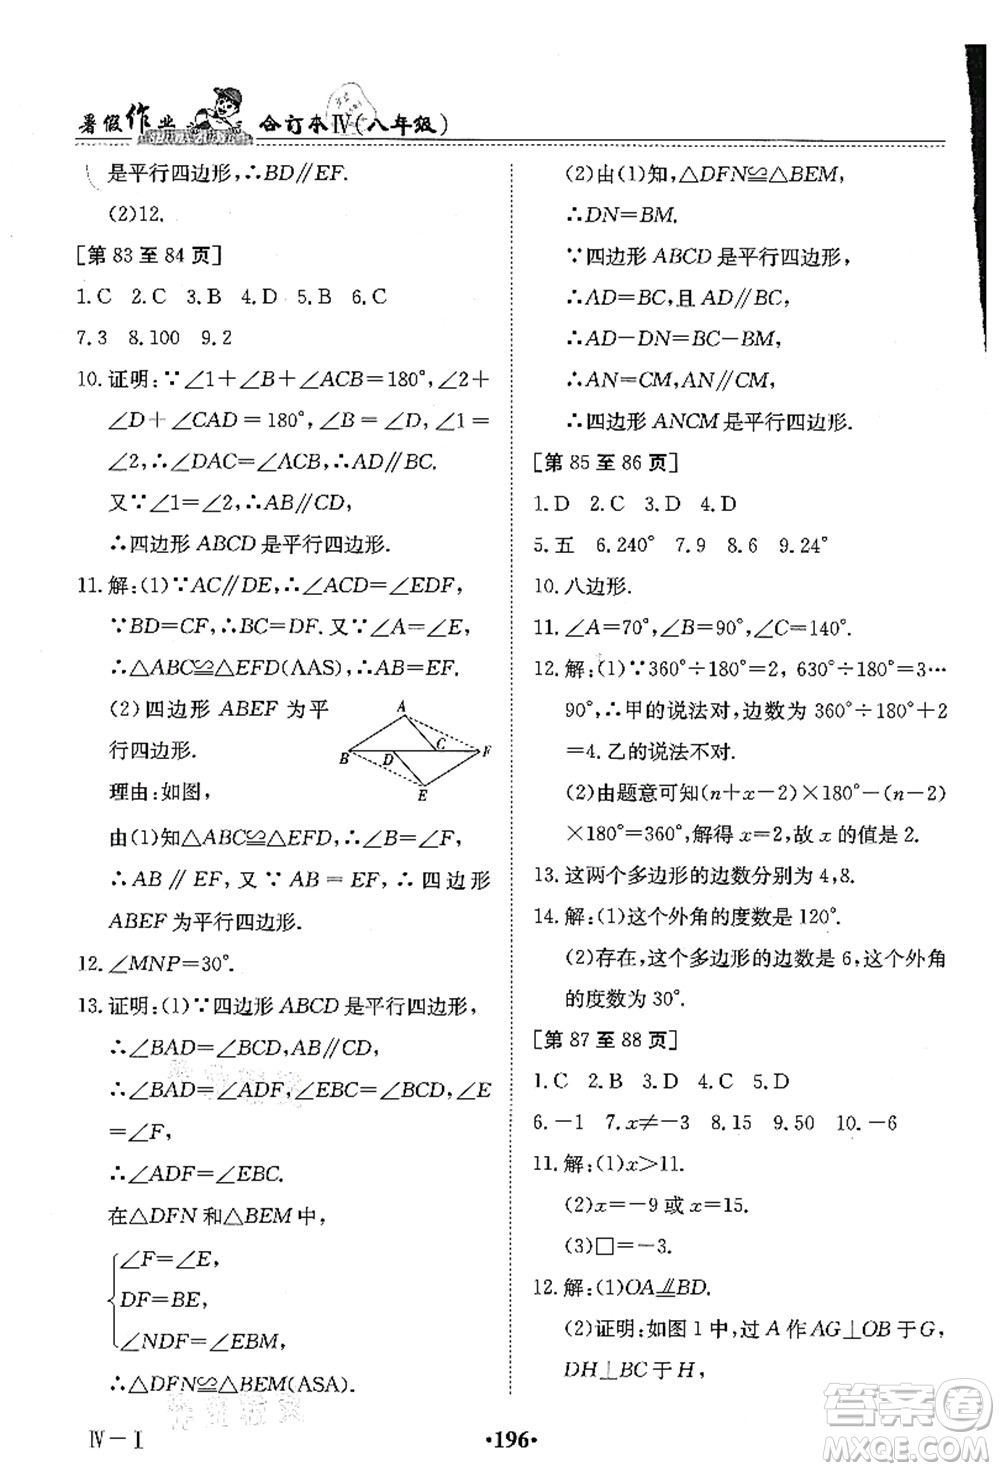 暑假作业 合订本Ⅳ(八年级)
是平行四边形,∴BD∥EF.
(2)12.
[第 83 至 84 页]
1.C 2.C 3.B 4.D 5.B 6.C
7.3 8.100 9.2
10.证明:∵∠1+∠B+∠ACB=180°,∠2+
∠D+∠CAD=180°,∠B=∠D,∠1=
∠2,∴∠DAC=∠ACB,∴AD∥BC.
又∵∠1=∠2,∴AB∥CD,
∴四边形 ABCD 是平行四边形.
11.解:(1)∵AC∥DE,∴∠ACD=∠EDF,
∵BD=CF,∴BC=DF.又∵∠A=∠E,
∴△ABC≌△EFD(AAS),∴AB=EF.
(2)四边形 ABEF 为平
行四边形.
理由:如图,
A
B
C
D
E
F
由(1)知△ABC≌△EFD,∴∠B=∠F,
∴AB∥EF,又∵AB=EF,∴四边形
ABEF 为平行四边形.
12.∠MNP=30°.
13.证明:(1)∵四边形 ABCD 是平行四边形,
∴∠BAD=∠BCD,AB∥CD,
∴∠BAD=∠ADF,∠EBC=∠BCD,∠E
=∠F,
∴∠ADF=∠EBC.
在△DFN 和△BEM 中,
∠F=∠E,
DF=BE,
∠NDF=∠EBM,
∴△DFN≌△BEM(ASA).
(2)由(1)知,△DFN≌△BEM,
∴DN=BM.
∵四边形 ABCD 是平行四边形,
∴AD=BC,且 AD∥BC,
∴AD-DN=BC-BM,
∴AN=CM,AN∥CM,
∴四边形 ANCM 是平行四边形.
[第 85 至 86 页]
1.D 2.C 3.D 4.D
5.五 6.240° 7.9 8.6 9.24°
10.八边形.
11.∠A=70°,∠B=90°,∠C=140°.
12.解:(1)∵360°÷180°=2,630°÷180°=3…
90°,∴甲的说法对,边数为 360°÷180°+2
=4.乙的说法不对.
(2)由题意可知(n+x-2)×180°-(n-2)
×180°=360°,解得 x=2,故 x 的值是 2.
13.这两个多边形的边数分别为 4,8.
14.解:(1)这个外角的度数是 120°.
(2)存在,这个多边形的边数是 6,这个外角
的度数为 30°.
[第 87 至 88 页]
1.C 2.B 3.D 4.C 5.D
6.-1 7.x≠-3 8.15 9.50 10.-6
11.解:(1)x>11.
(2)x=-9 或 x=15.
(3)□=-3.
12.解:(1)OA⫫BD.
(2)证明:如图 1 中,过 A 作 AG⊥OB 于 G,
DH⊥BC 于 H,
Ⅳ-Ⅰ
·196·
答案圈
MXQE.COM